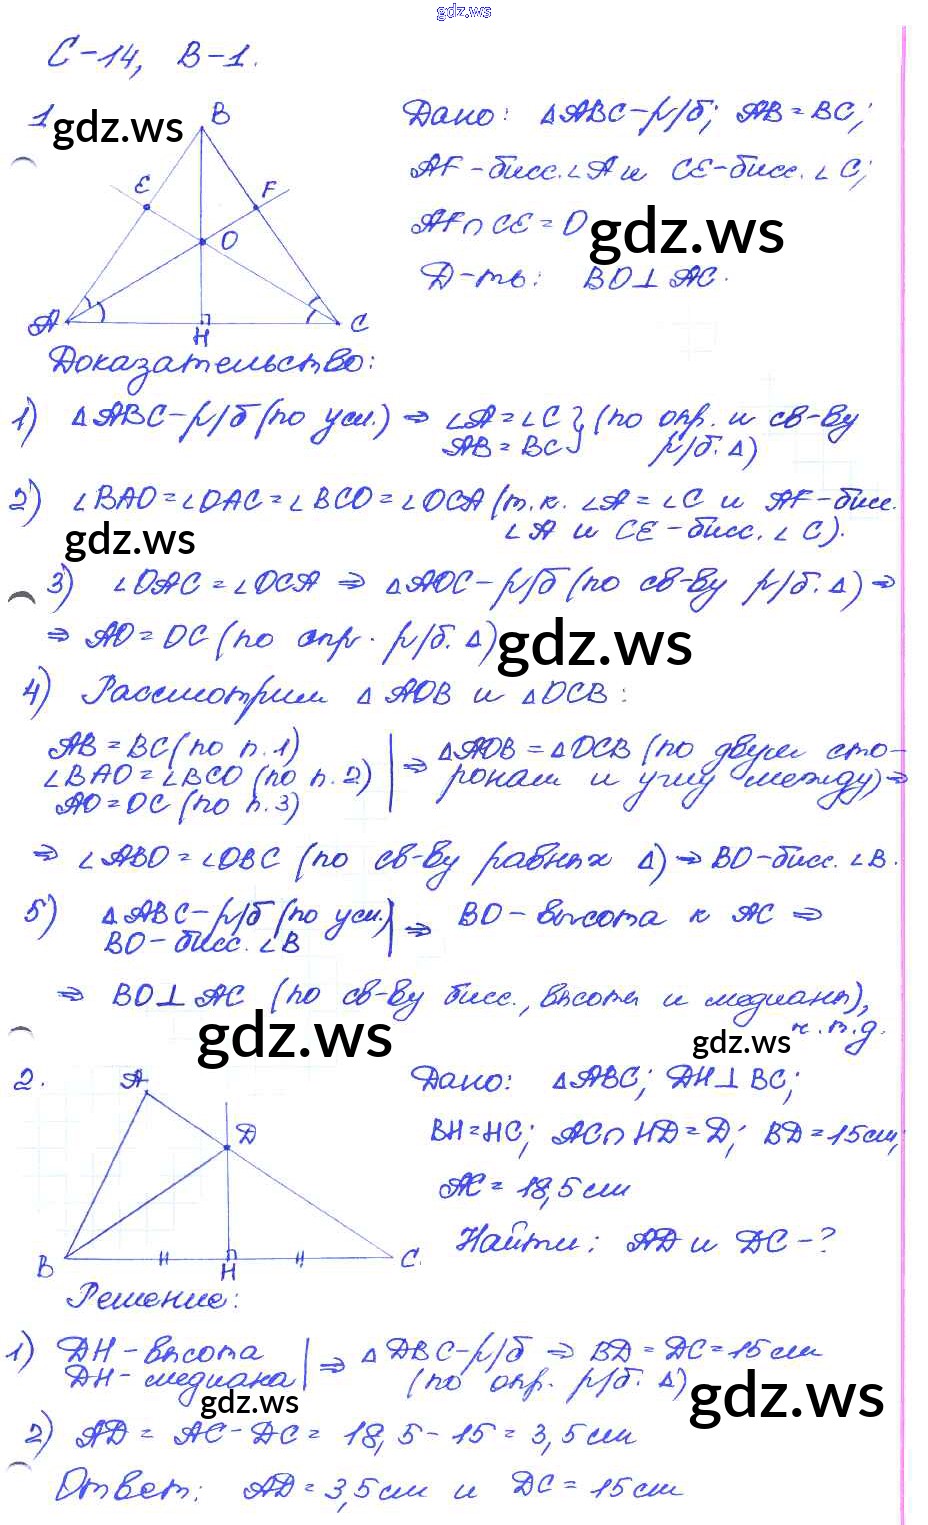 gdz.ws
С-14, В-1.
1.
gdz.ws
B
E
F
O
A
H
C
Дано: ΔABC-р/б; AB=BC;
AF-бисс.∠A и CE-бисс.∠C;
AF∩CE=O
gdz.ws
Д-ть: BO⊥AC.
Доказательство:
1) ΔABC-р/б (по усл.) ⇒ ∠A=∠C } (по опр. и св-ву
AB=BC р/б. Δ)
2) ∠BAO=∠OAC=∠BCO=∠OCA (т.к. ∠A=∠C и AF-бисс.
∠A и CE-бисс. ∠C).
gdz.ws
3) ∠OAC=∠OCA ⇒ ΔAOC-р/б (по св-ву р/б. Δ) ⇒
⇒ AO=OC (по опр. р/б. Δ)
gdz.ws
4) Рассмотрим ΔAOB и ΔOCB:
AB=BC (по п.1)
∠BAO=∠BCO (по п.2)
AO=OC (по п.3)
⇒ ΔAOB=ΔOCB (по двум сто-
ронам и углу между) ⇒
⇒ ∠ABO=∠OBC (по св-ву равных Δ) ⇒ BO-бисс. ∠B.
5) ΔABC-р/б (по усл.)
BO-бисс. ∠B
⇒ BO-высота к AC ⇒
⇒ BO⊥AC (по св-ву бисс., высоты и медианы),
ч.т.д.
gdz.ws
gdz.ws
2.
A
D
B
H
C.
Дано: ΔABC; DH⊥BC;
BH=HC; AC∩HD=D; BD=15см;
AC=18,5см
Найти: AD и DC-?
Решение:
1) DH-высота
DH-медиана
⇒ ΔDBC-р/б ⇒ BD=DC=15см
(по опр. р/б. Δ)
gdz.ws
gdz.ws
2) AD=AC-DC=18,5-15=3,5см
Ответ: AD=3,5см и DC=15см